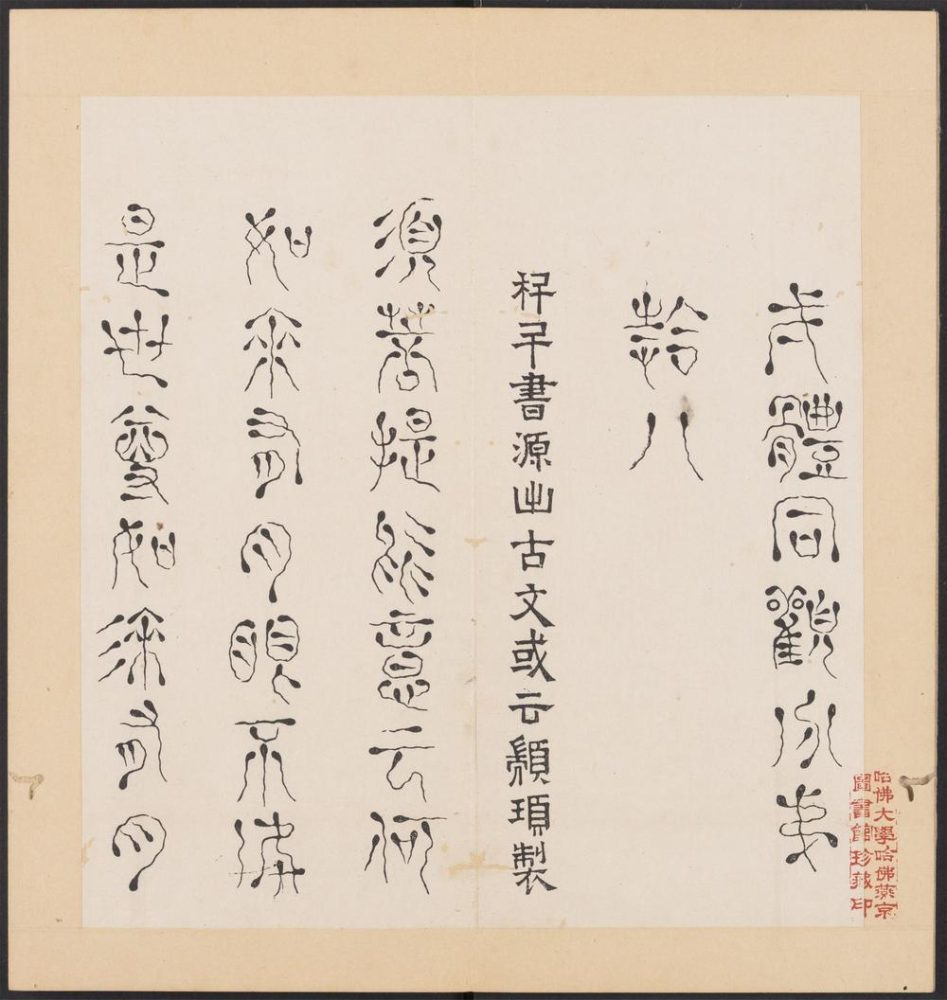 弌體同觀分弟
八
科斗書源出古文或云顓頊製
須菩提於意云何
如來有肉眼不如
是世尊如來有肉
哈佛大學哈佛燕京
圖書館珍藏印